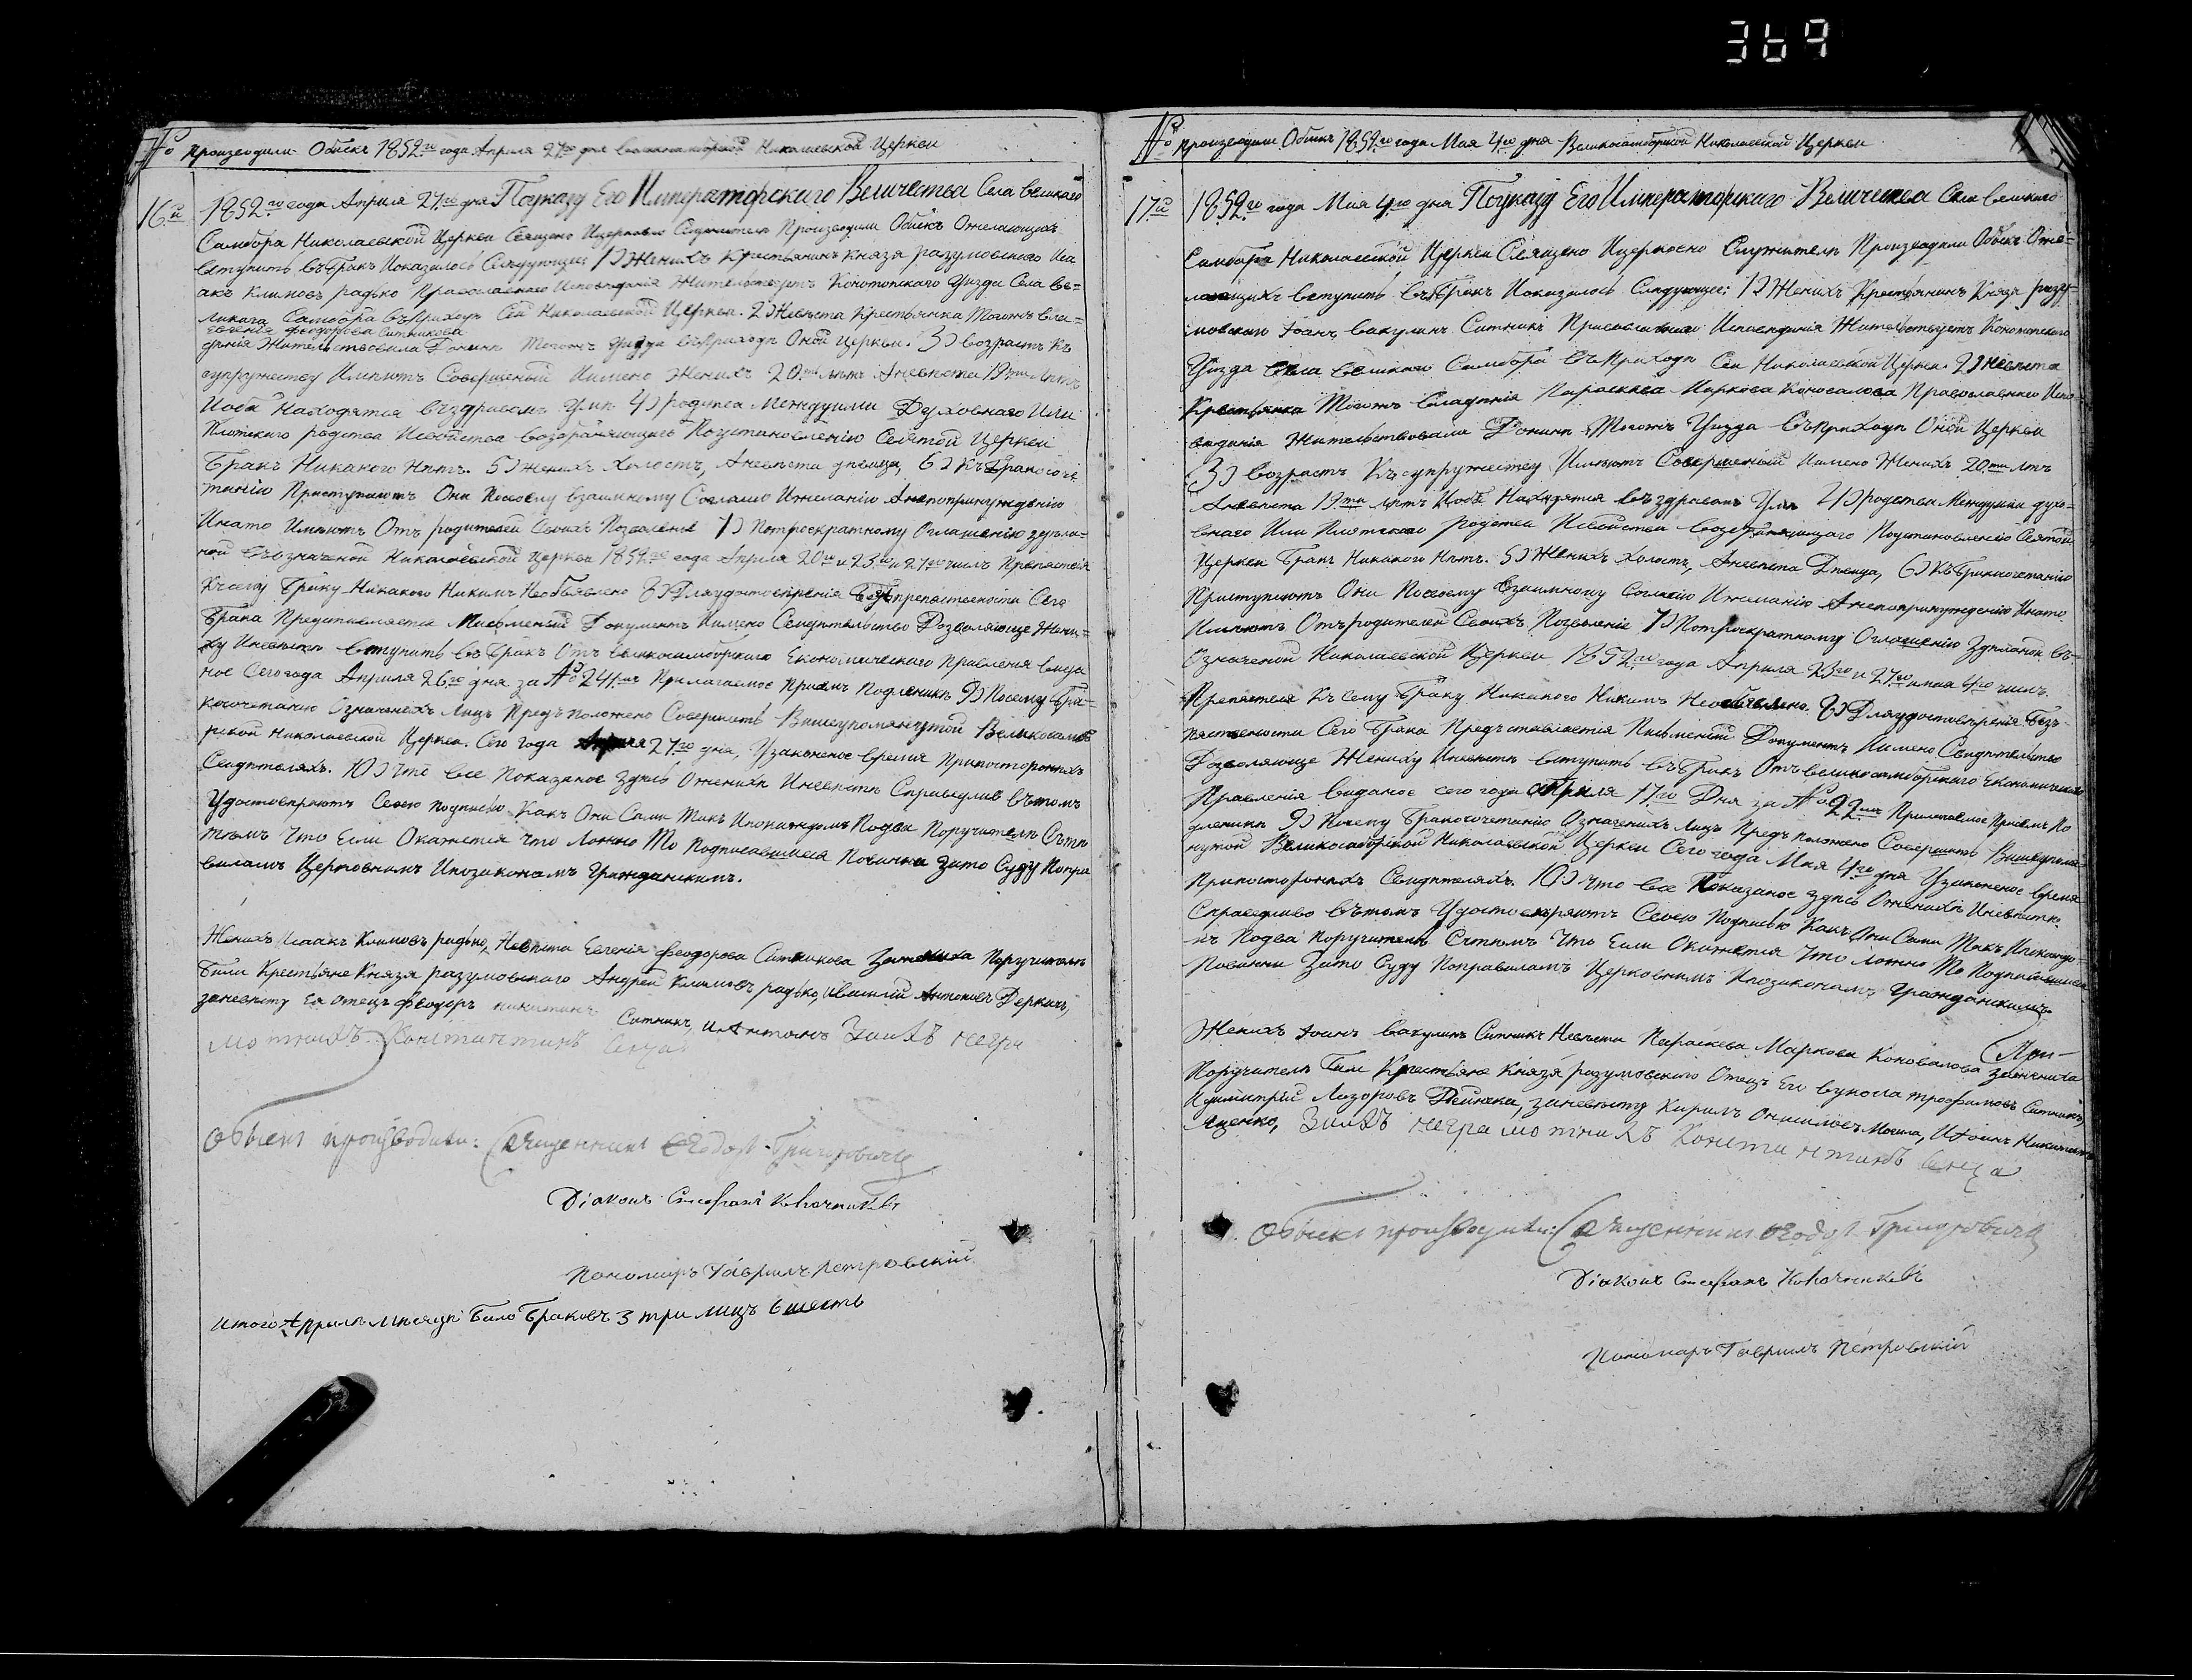 369
№ Производили Обыскъ 1852.го года Апреля 27.го дня Великосамборской Николаевской Церкви
16.й
1852.го года Апреля 27.го дня Поуказу Его Императорского Величества Села Великаго
Самбора Николаевской Церкви Священо Ицерковно Служители Производили Обыскъ Ожелающихъ
вступить въ Бракъ Иоказалось Следующее 1) Женихъ Крестьянинъ Князя разумовского Иса
акъ Климовъ радько Православнаго Исповеданія Жительствуетъ Конотопскаго Уизда Села Ве=
ликаго Самбора въ Приходъ Сей Николаевской Церкви. 2) Невеста Крестьянка Тогожъ Вла=
Евгенія Феодорова Ситникова
денія Жительствовала Донинѣ Тогожъ Уизда въ Приходѣ Оной Церкви. 3) возрастъ Къ
супружеству Имѣютъ Совершеный Иимено Женихъ 20.ть лѣтъ Аневеста 19ть Лѣтъ
Иоба Находятся въздравомъ Умѣ 4) родства Междуими Духовнаго Или
Плотскаго родства Исвойства возбраняющаго Поустановленію Святой Церкви
Бракъ Никакого Нѣтъ. 5) Женихъ Холостъ, Аневеста девица, 6) Къ Бракосоче
танію Приступаютъ Они Посвоему взаимному Согласію Ижеланію Анепопринужденію
Инато Имѣютъ Отъ родителей Своихъ Позволеніе 7) Потроекратному Оглашенію здѣла=
ной въ означеной Николаевской Церкви 1852.го года Апреля 20го и 23.го и 27го числъ Препятствія
Ксему Браку Никакого Никимъ Необъявлено 8) Дляудостоверенія Безпрепяствености Сего
Брака Представляется Письменый Документъ Иимено Свидительство Дозволяюще Жени=
ху Иневестѣ вступить въ Бракъ Отъ великосамборскаго Економическаго Правленія выда
ное Сегогода Апреля 26го дня за № 24.мъ Прилагаемое Присемъ Подленикъ 9) Посему Бра=
косочетанію Означеныхъ Лицъ Предъположено Совершить Вишеупомянутой Великосамбо
рской Николаевской Церкви. Сего года Апреля 27го дня, Узаконеное время Припостороннихъ
Свидителяхъ. 10) Что все Показаное здѣсь Оженихѣ Иневестѣ Справедливо вътомъ
Удостоверяютъ Своею подписью Какъ Они Сами Такъ Ипокаждомъ Подва Поручителя Сътѣ
темъ Что Если Окажется Что Ложно То Подписавшиеся Повинни Зато Суду Попра
виламъ Церковнимъ Ипозаконамъ Гражданскимъ.
Женихъ Исаакъ Климовъ радько, Невеста Евгенія Феодорова Ситникова Зажениха Поручители
Били Крестьяне Князя разумовскаго Андрей Климовъ радько, Ивасилій Антоновъ Деркачъ,
заневесту Ея отецъ Феодоръ никитинъ Ситникъ, иАнтонъ Заихъ негра
мотнихъ Константинъ
Обыскъ производили: Священникъ Феодоръ Григоровичъ
Діаконъ Стефанъ
Пономаръ Гаврилъ Петровскій
Итого Априлѣ Мисяцѣ Било Браковъ 3 три лицъ 6 шесть
№ Производили Обыскъ 1852.го года Мая 4го дня Великосамборской Николаевской Церкви
17.й
1852.го года Мая 4.го дня Поуказу Его Императорского Величества Села Великаго
Самбора Николаевской Церкви Священо Ицерковно Служители Производили Обыскъ Оже=
лающихъ вступить въ Бракъ Иоказалось Следующее; 1) Женихъ Крестьянинъ Князя разу=
мовскаго Іоанъ Вакулинъ Ситникъ Православнаго Исповеданія Жительствуетъ Конотопскаго
Уизда Села Великаго Самбора въ Приходѣ Сей Николаевской Церкви. 2) Невеста
Крестьянка Тогожъ Владенія Параскева Маркова Коновалова Православнаго Испо
веданія Жительствовала Донинѣ Тогожъ Уизда въ Приходѣ Оной Церкви
3) возрастъ Къ супружеству Имѣютъ Совершеный Иимено Женихъ 20.ти летъ
Аневеста 19.ти летъ Иоба Находятся въ здравомъ Умѣ 4) родства Междуими духо=
внаго Или Плотскаго родства Исвойства возбраняющаго Поустановленію Святой
Церкви Бракъ Никакого Нѣтъ. 5) Женихъ Холостъ, Аневеста Девица, 6) Къ Бракосочетанію
Приступаютъ Они Посвоему Взаимному Согласію Ижеланію Анепопринужденію Инато
Имѣютъ Отъ родителей Своихъ Позволеніе 7) Потроекратному Оглашенію Зделаной въ
Означеной Николаевской Церкви 1852.го года Апреля 23го и 27го и мая 4го числъ.
Препятствія Къ Сему Браку Никакого Никимъ Необъявлено. 8) Дляудостоверенія Безъ
пяствености Сего Брака Предъставляется Письменый Документъ Иимено Свидительство
Дозволяюще Жениху Иневестѣ вступить въ Бракъ Отъ великосамборскаго Економическаго
Правленія виданое сего года Априля 17го Дня за № 22.мъ Прилагаемое Присемъ По
дленикъ 9) Посему Бракосочетанію Означеныхъ Лицъ Предъположено Совершить Вишеупомя
нутой Великосамборской Николаевской Церкви Сего года Мая 4.го дня Узаконеное время
Припостороннихъ Свидителяхъ. 10) Что все Показаное здѣсь Оженихѣ Иневестѣ
Справедливо вътомъ Удостоверяютъ Своею Подписью Какъ Они Сами Такъ Ипокаждо
мъ Подва Поручителя Сътемъ Что Если Окажется Что Ложно То Подписавшиеся
Повинни Зато Суду Поправиламъ Церковнимъ Ипозаконамъ Гражданскимъ
Женихъ Іоанъ Вакулинъ Ситникъ Невеста Параскева Маркова Коновалова Зажениха
Поручители Били Крестьяне Князя разумовскаго Отецъ Его Вукола трофимовъ Ситникъ,
Идимитрій Лазоровъ Дейнека, заневесту Кирилъ Онисимовъ Могила, Иіоанъ Никитинъ
Яценко, Заихъ неграмотнихъ Константинъ
Обыскъ производили: Священникъ Феодоръ Григоровичъ
Діаконъ Стефанъ
Пономаръ Гаврилъ Петровскій